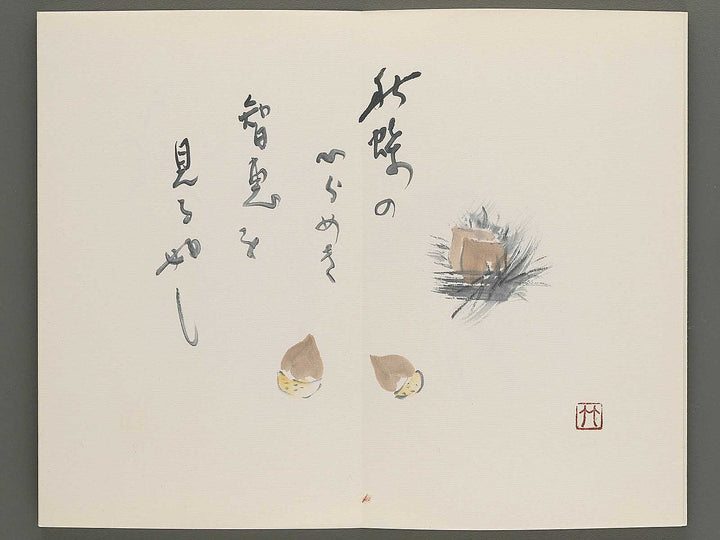 秋蝶の
ひらめき
智恵を
見る如し
竹